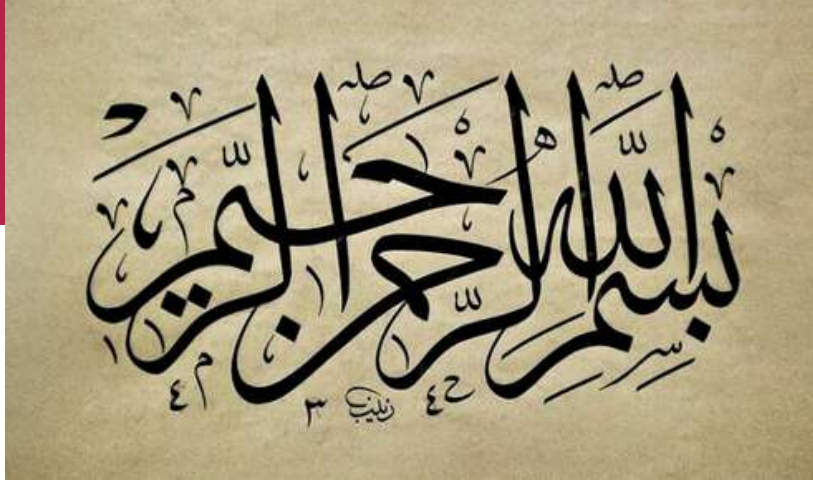 بِسْمِ اللّٰهِ الرَّحْمٰنِ الرَّحِيْمِ
زينب